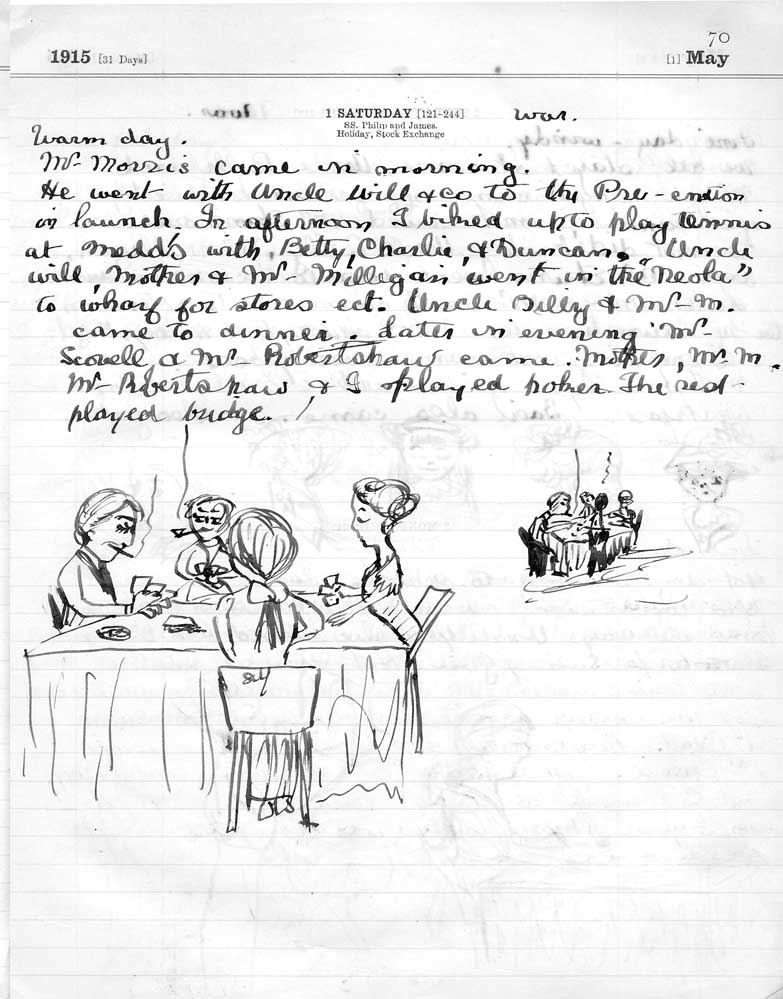 70
1915 [31 Days] [1] May
1 SATURDAY [121-244] war.
SS. Philip and James.
Holiday, Stock Exchange
Warm day.
Mr. Morris came in morning.
He went with Uncle Will & co to thy Pre-emtion
in launch. In afternoon I biked up to play tennis
at Medd's with Betty, Charlie, & Duncan. Uncle
will, Mother & Mr. Milligan went in the "Neola"
to wharf for stores ect. Uncle Billy & Mr. M.
came to dinner. Later in evening Mr.
Scovell & Mr. Robertshaw came. Mother, Mr. M.
Mr. Robertshaw & I played poker. The rest
played bridge.